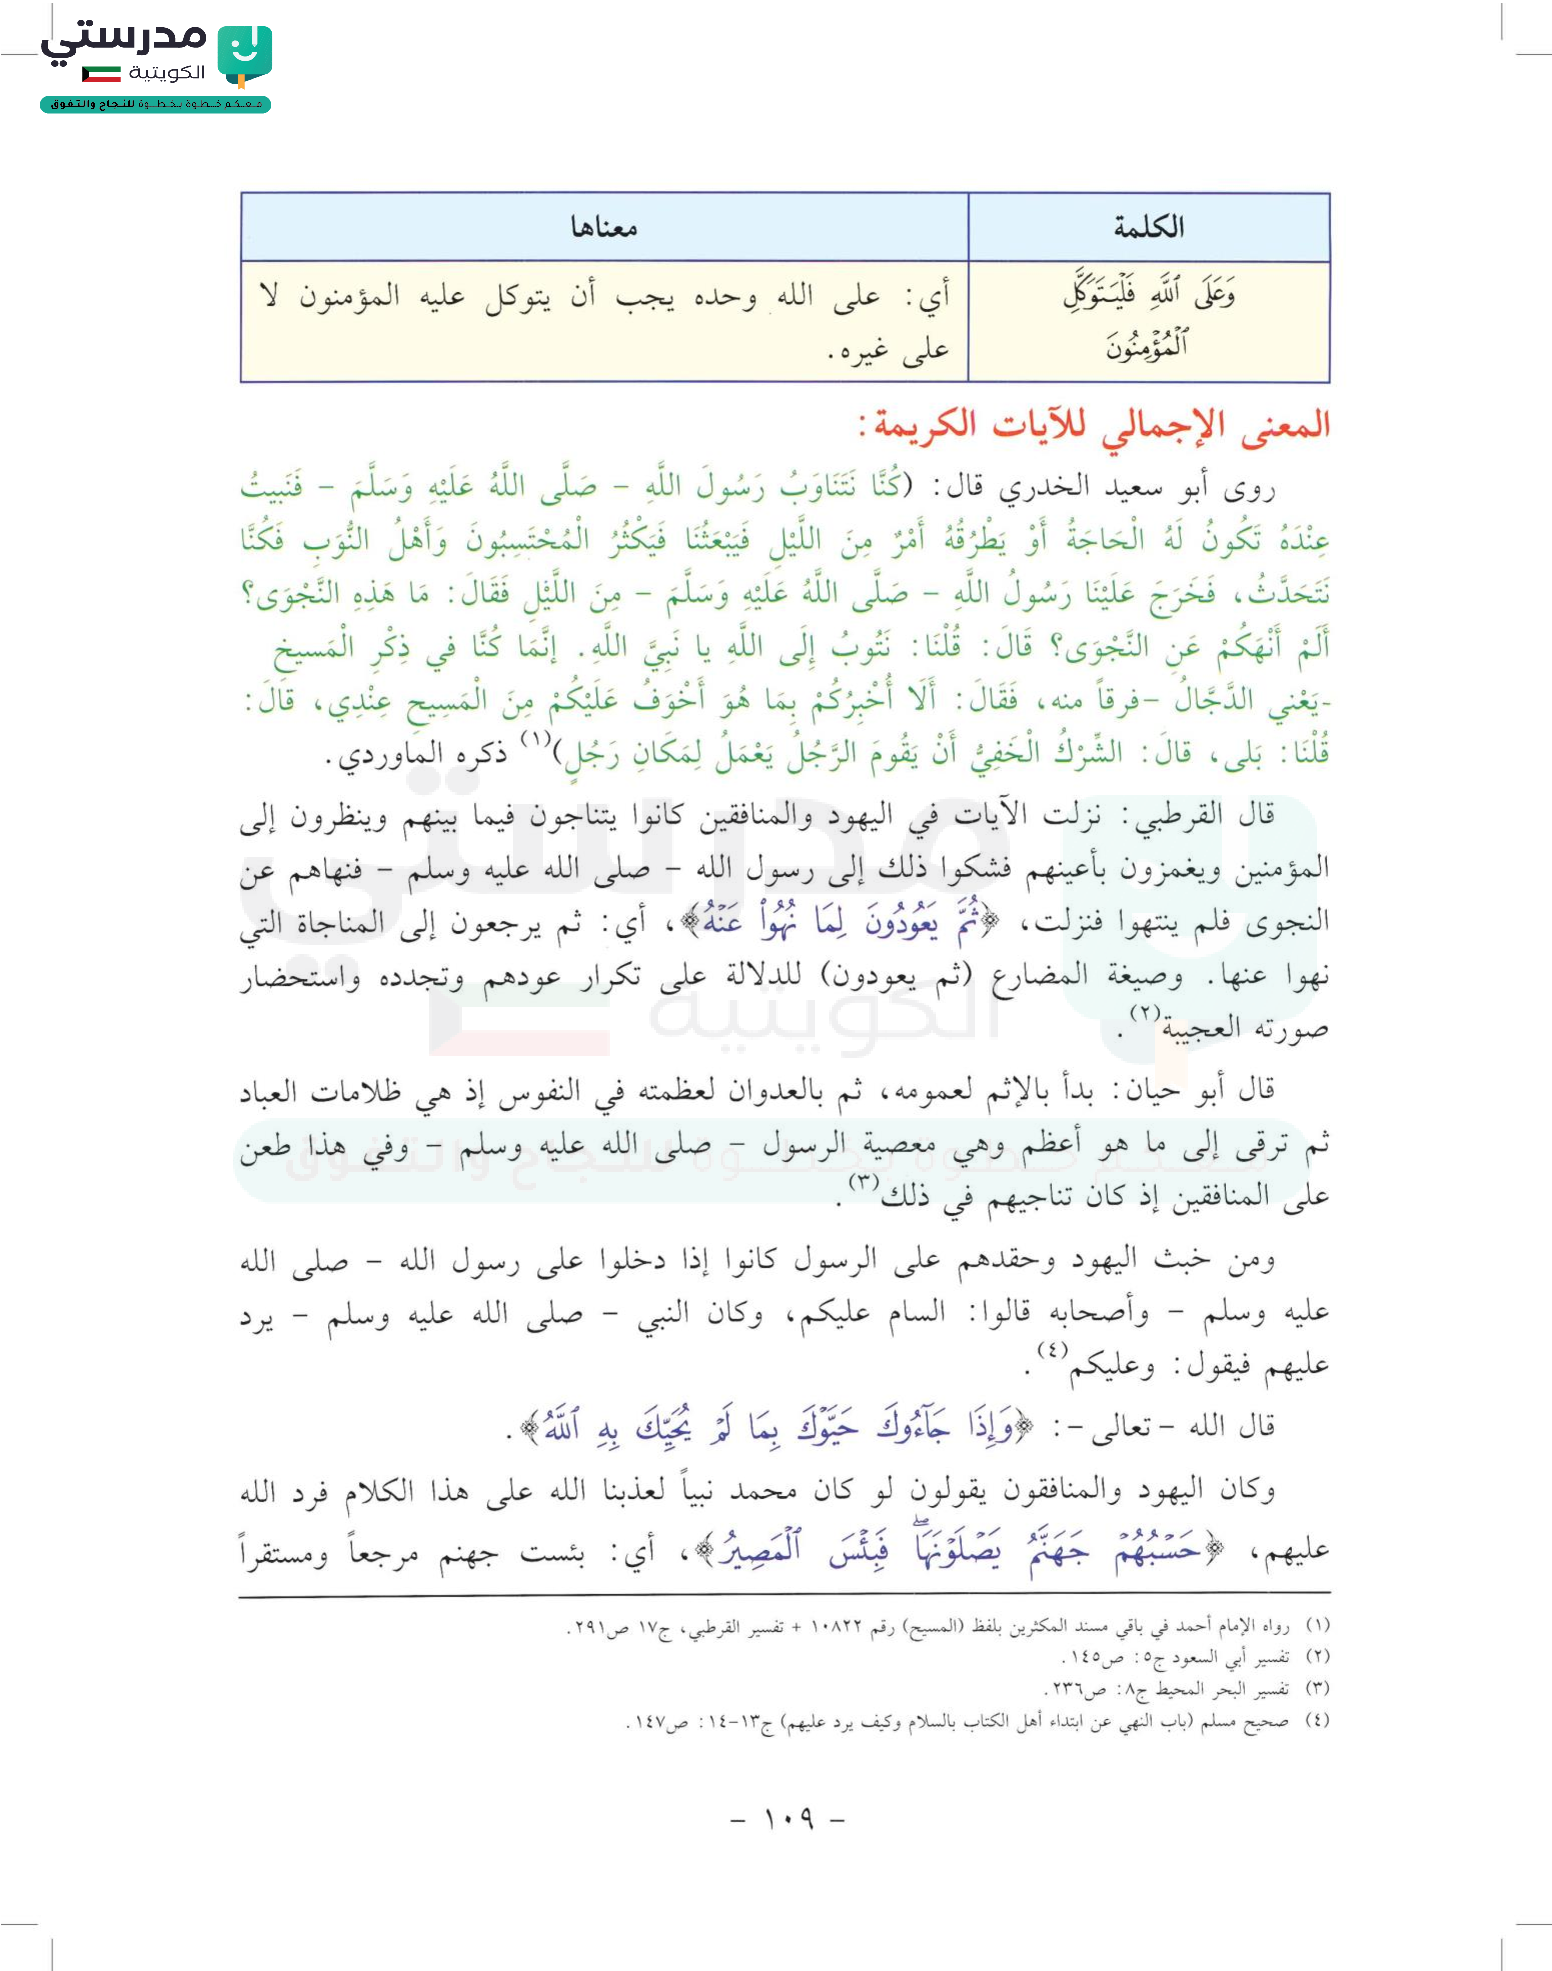 مدرستي
الكويتية
معكم خطوة بخطوة للنجاح والتفوق
الكلمة
معناها
وَعَلَى ٱللَّهِ فَلْيَتَوَكَّلِ
ٱلْمُؤْمِنُونَ
أي: على الله وحده يجب أن يتوكل عليه المؤمنون لا
على غيره.
المعنى الإجمالي للآيات الكريمة:
روى أبو سعيد الخدري قال: (كُنَّا نَتَنَاوَبُ رَسُولَ اللَّهِ – صَلَّى اللَّهُ عَلَيْهِ وَسَلَّمَ – فَنَبِيتُ
عِنْدَهُ تَكُونُ لَهُ الْحَاجَةُ أَوْ يَطْرُقُهُ أَمْرٌ مِنَ اللَّيْلِ فَيَبْعَثُنَا فَيَكْثُرُ الْمُحْتَسِبُونَ وَأَهْلُ النُّوَبِ فَكُنَّا
نَتَحَدَّثُ، فَخَرَجَ عَلَيْنَا رَسُولُ اللَّهِ – صَلَّى اللَّهُ عَلَيْهِ وَسَلَّمَ – مِنَ اللَّيْلِ فَقَالَ: مَا هَذِهِ النَّجْوَى؟
أَلَمْ أَنْهَكُمْ عَنِ النَّجْوَى؟ قَالَ: قُلْنَا: نَتُوبُ إِلَى اللَّهِ يا نَبِيَّ اللَّهِ. إنَّمَا كُنَّا في ذِكْرِ الْمَسيخِ
-يَعْني الدَّجَّالُ –فرقاً منه، فَقَالَ: أَلَا أُخْبِرُكُمْ بِمَا هُوَ أَخْوَفُ عَلَيْكُمْ مِنَ الْمَسِيحِ عِنْدِي، قالَ:
قُلْنَا: بَلى، قالَ: الشِّرْكُ الْخَفِيُّ أَنْ يَقُومَ الرَّجُلُ يَعْمَلُ لِمَكَانِ رَجُلٍ)(١) ذكره الماوردي.
قال القرطبي: نزلت الآيات في اليهود والمنافقين كانوا يتناجون فيما بينهم وينظرون إلى
المؤمنين ويغمزون بأعينهم فشكوا ذلك إلى رسول الله – صلى الله عليه وسلم – فنهاهم عن
النجوى فلم ينتهوا فنزلت، ﴿ثُمَّ يَعُودُونَ لِمَا نُهُواْ عَنْهُ﴾، أي: ثم يرجعون إلى المناجاة التي
نهوا عنها. وصيغة المضارع (ثم يعودون) للدلالة على تكرار عودهم وتجدده واستحضار
صورته العجيبة(٢).
قال أبو حيان: بدأ بالإثم لعمومه، ثم بالعدوان لعظمته في النفوس إذ هي ظلامات العباد
ثم ترقى إلى ما هو أعظم وهي معصية الرسول – صلى الله عليه وسلم – وفي هذا طعن
على المنافقين إذ كان تناجيهم في ذلك(٣).
ومن خبث اليهود وحقدهم على الرسول كانوا إذا دخلوا على رسول الله – صلى الله
عليه وسلم – وأصحابه قالوا: السام عليكم، وكان النبي – صلى الله عليه وسلم – يرد
عليهم فيقول: وعليكم(٤).
قال الله –تعالى–: ﴿وَإِذَا جَآءُوكَ حَيَّوْكَ بِمَا لَمْ يُحَيِّكَ بِهِ ٱللَّهُ﴾.
وكان اليهود والمنافقون يقولون لو كان محمد نبياً لعذبنا الله على هذا الكلام فرد الله
عليهم، ﴿حَسْبُهُمْ جَهَنَّمُ يَصْلَوْنَهَا ۖ فَبِئْسَ ٱلْمَصِيرُ﴾، أي: بئست جهنم مرجعاً ومستقراً
(١) رواه الإمام أحمد في باقي مسند المكثرين بلفظ (المسيح) رقم ١٠٨٢٢ + تفسير القرطبي، ج١٧ ص٢٩١.
(٢) تفسير أبي السعود ج٥: ص١٤٥.
(٣) تفسير البحر المحيط ج٨: ص٢٣٦.
(٤) صحيح مسلم (باب النهي عن ابتداء أهل الكتاب بالسلام وكيف يرد عليهم) ج١٣-١٤: ص١٤٧.
– ١٠٩ –